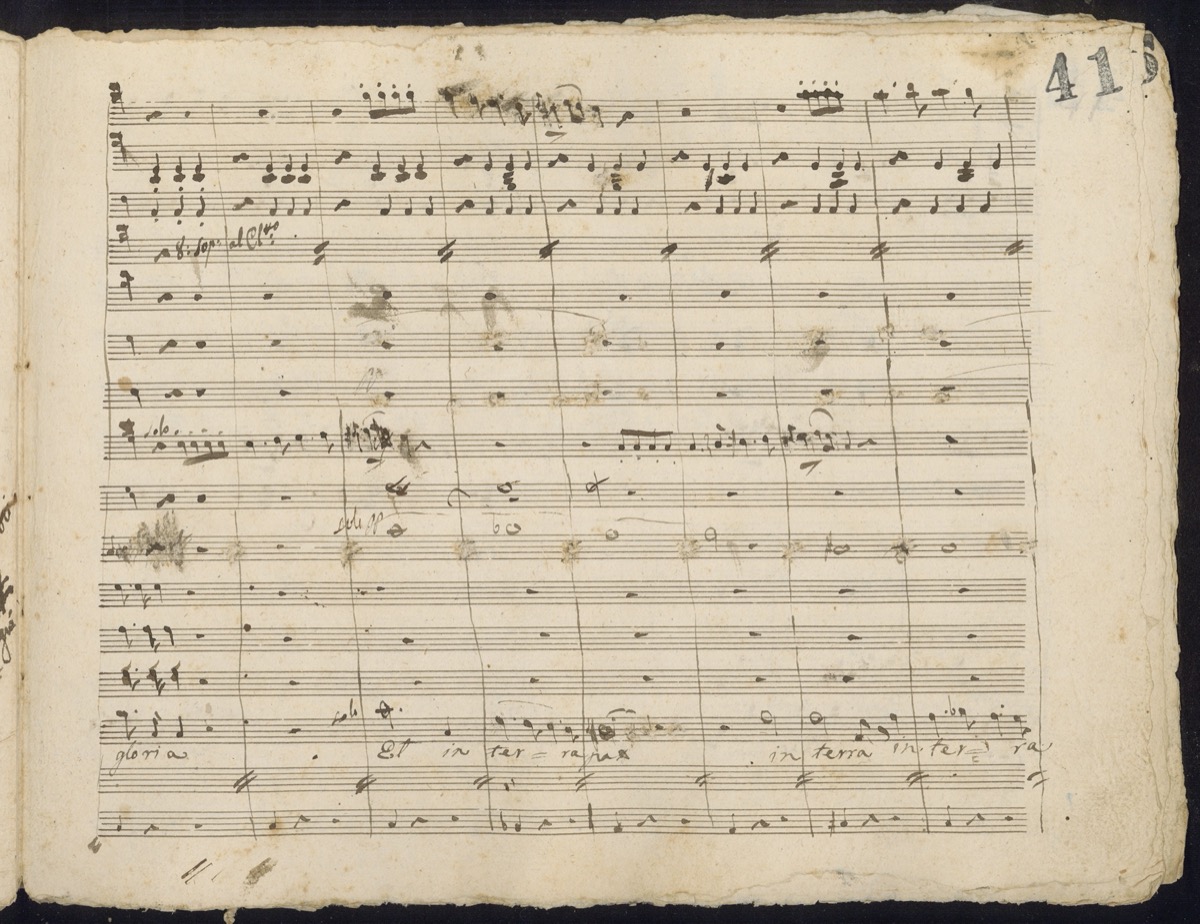 416
8: sop: al Cl:tto
solo
pp
solo pp
solo
gloria Et in ter = ra pax in terra in ter = ra